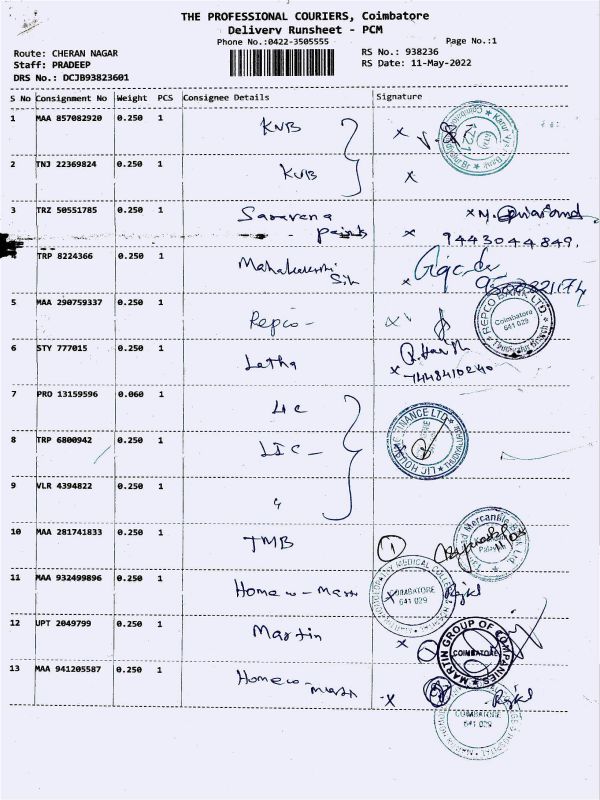 THE PROFESSIONAL COURIERS, Coimbatore
Delivery Runsheet - PCM
Phone No.:0422-3505555
Page No.:1
Route: CHERAN NAGAR
RS No.: 938236
Staff: PRADEEP
RS Date: 11-May-2022
DRS No.: DCJB93823601
S No Consignment No Weight PCS Consignee Details Signature
1 MAA 857082920 0.250 1 KVB x
2 TNJ 22369824 0.250 1 KVB x
3 TRZ 50551785 0.250 1 Saravana x M.
paints x 9443044849.
4 TRP 8224366 0.250 1
5 MAA 290759337 0.250 1 Repco -
REPCO BANK LTD
Coimbatore
641 029
6 STY 777015 0.250 1 Latha
x 7448410240
7 PRO 13159596 0.060 1 LIC
8 TRP 6800942 0.250 1 LIC -
LIC HOUSING FINANCE LTD
9 VLR 4394822 0.250 1 "
10 MAA 281741833 0.250 1 TMB 1
Mercantile Bank Ltd.
11 MAA 932499896 0.250 1 Homeo - Martin x
MEDICAL COLLEGE
COIMBATORE
641 029
12 UPT 2049799 0.250 1 Martin x
MARTIN GROUP OF COMPANIES
COIMBATORE
13 MAA 941205587 0.250 1 Homeo - Martin x
COIMBATORE
641 029